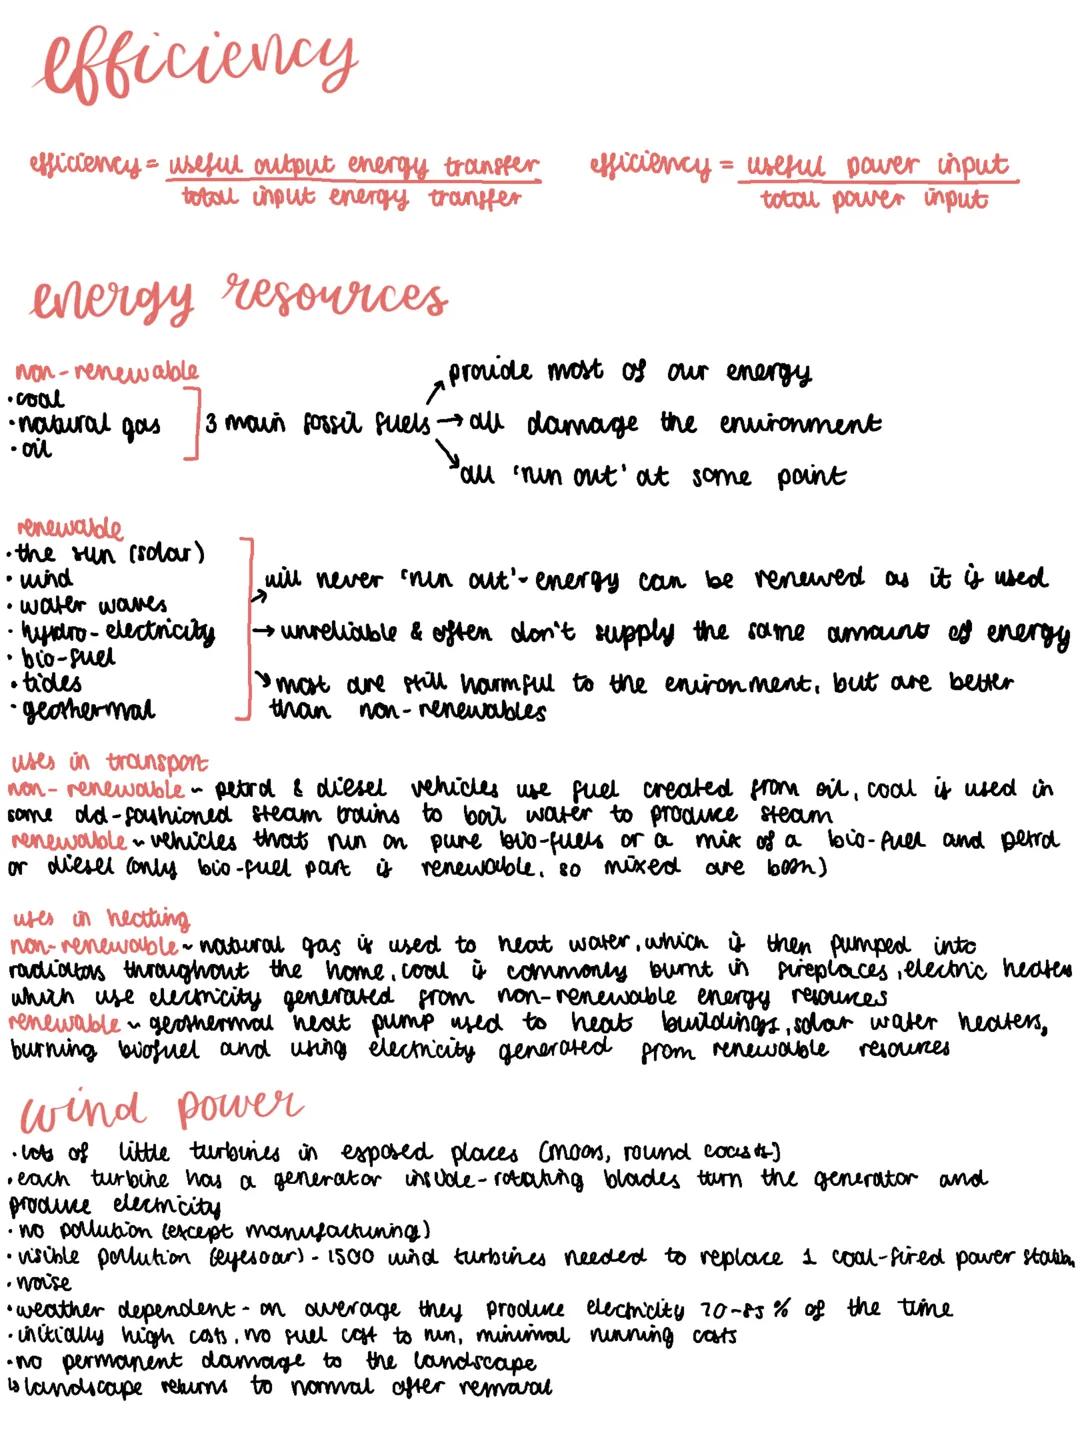 efficiency
efficiency = useful output energy transfer
total input energy transfer
efficiency = useful power input
total power input
energy resources
non-renewable
•coal
•natural gas
•oil
3 main fossil fuels
provide most of our energy
→ all damage the environment
all 'run out' at some point
renewable
•the sun (solar)
•wind
•water waves
•hydro-electricity
•bio-fuel
•tides
•geothermal
will never 'run out' - energy can be renewed as it is used
→ unreliable & often don't supply the same amount of energy
most are still harmful to the enironment, but are better
than non-renewables
uses in transport
non-renewable ~ petrol & diesel vehicles use fuel created from oil, coal is used in
some old-fashioned steam trains to boil water to produce steam
renewable ~ vehicles that run on pure bio-fuels or a mix of a bio-fuel and petrol
or diesel (only bio-fuel part is renewable, so mixed are both)
uses in heating
non-renewable ~ natural gas is used to heat water, which is then pumped into
radiators throughout the home, coal is commonly burnt in fireplaces, electric heaters
which use electricity generated from non-renewable energy resources
renewable ~ geothermal heat pump used to heat buildings, solar water heaters,
burning biofuel and using electricity generated from renewable resources
wind power
•lots of little turbines in exposed places (moors, round coasts)
•each turbine has a generator inside - rotating blades turn the generator and
produce electricity
•no pollution (except manufacturing)
•visible pollution (eyesoar) - 1500 wind turbines needed to replace 1 coal-fired power station
•noise
•weather dependent - on average they produce electricity 70-85% of the time
•initially high costs, no fuel cost to run, minimal running costs
•no permanent damage to the landscape
↳ landscape returns to normal after removal